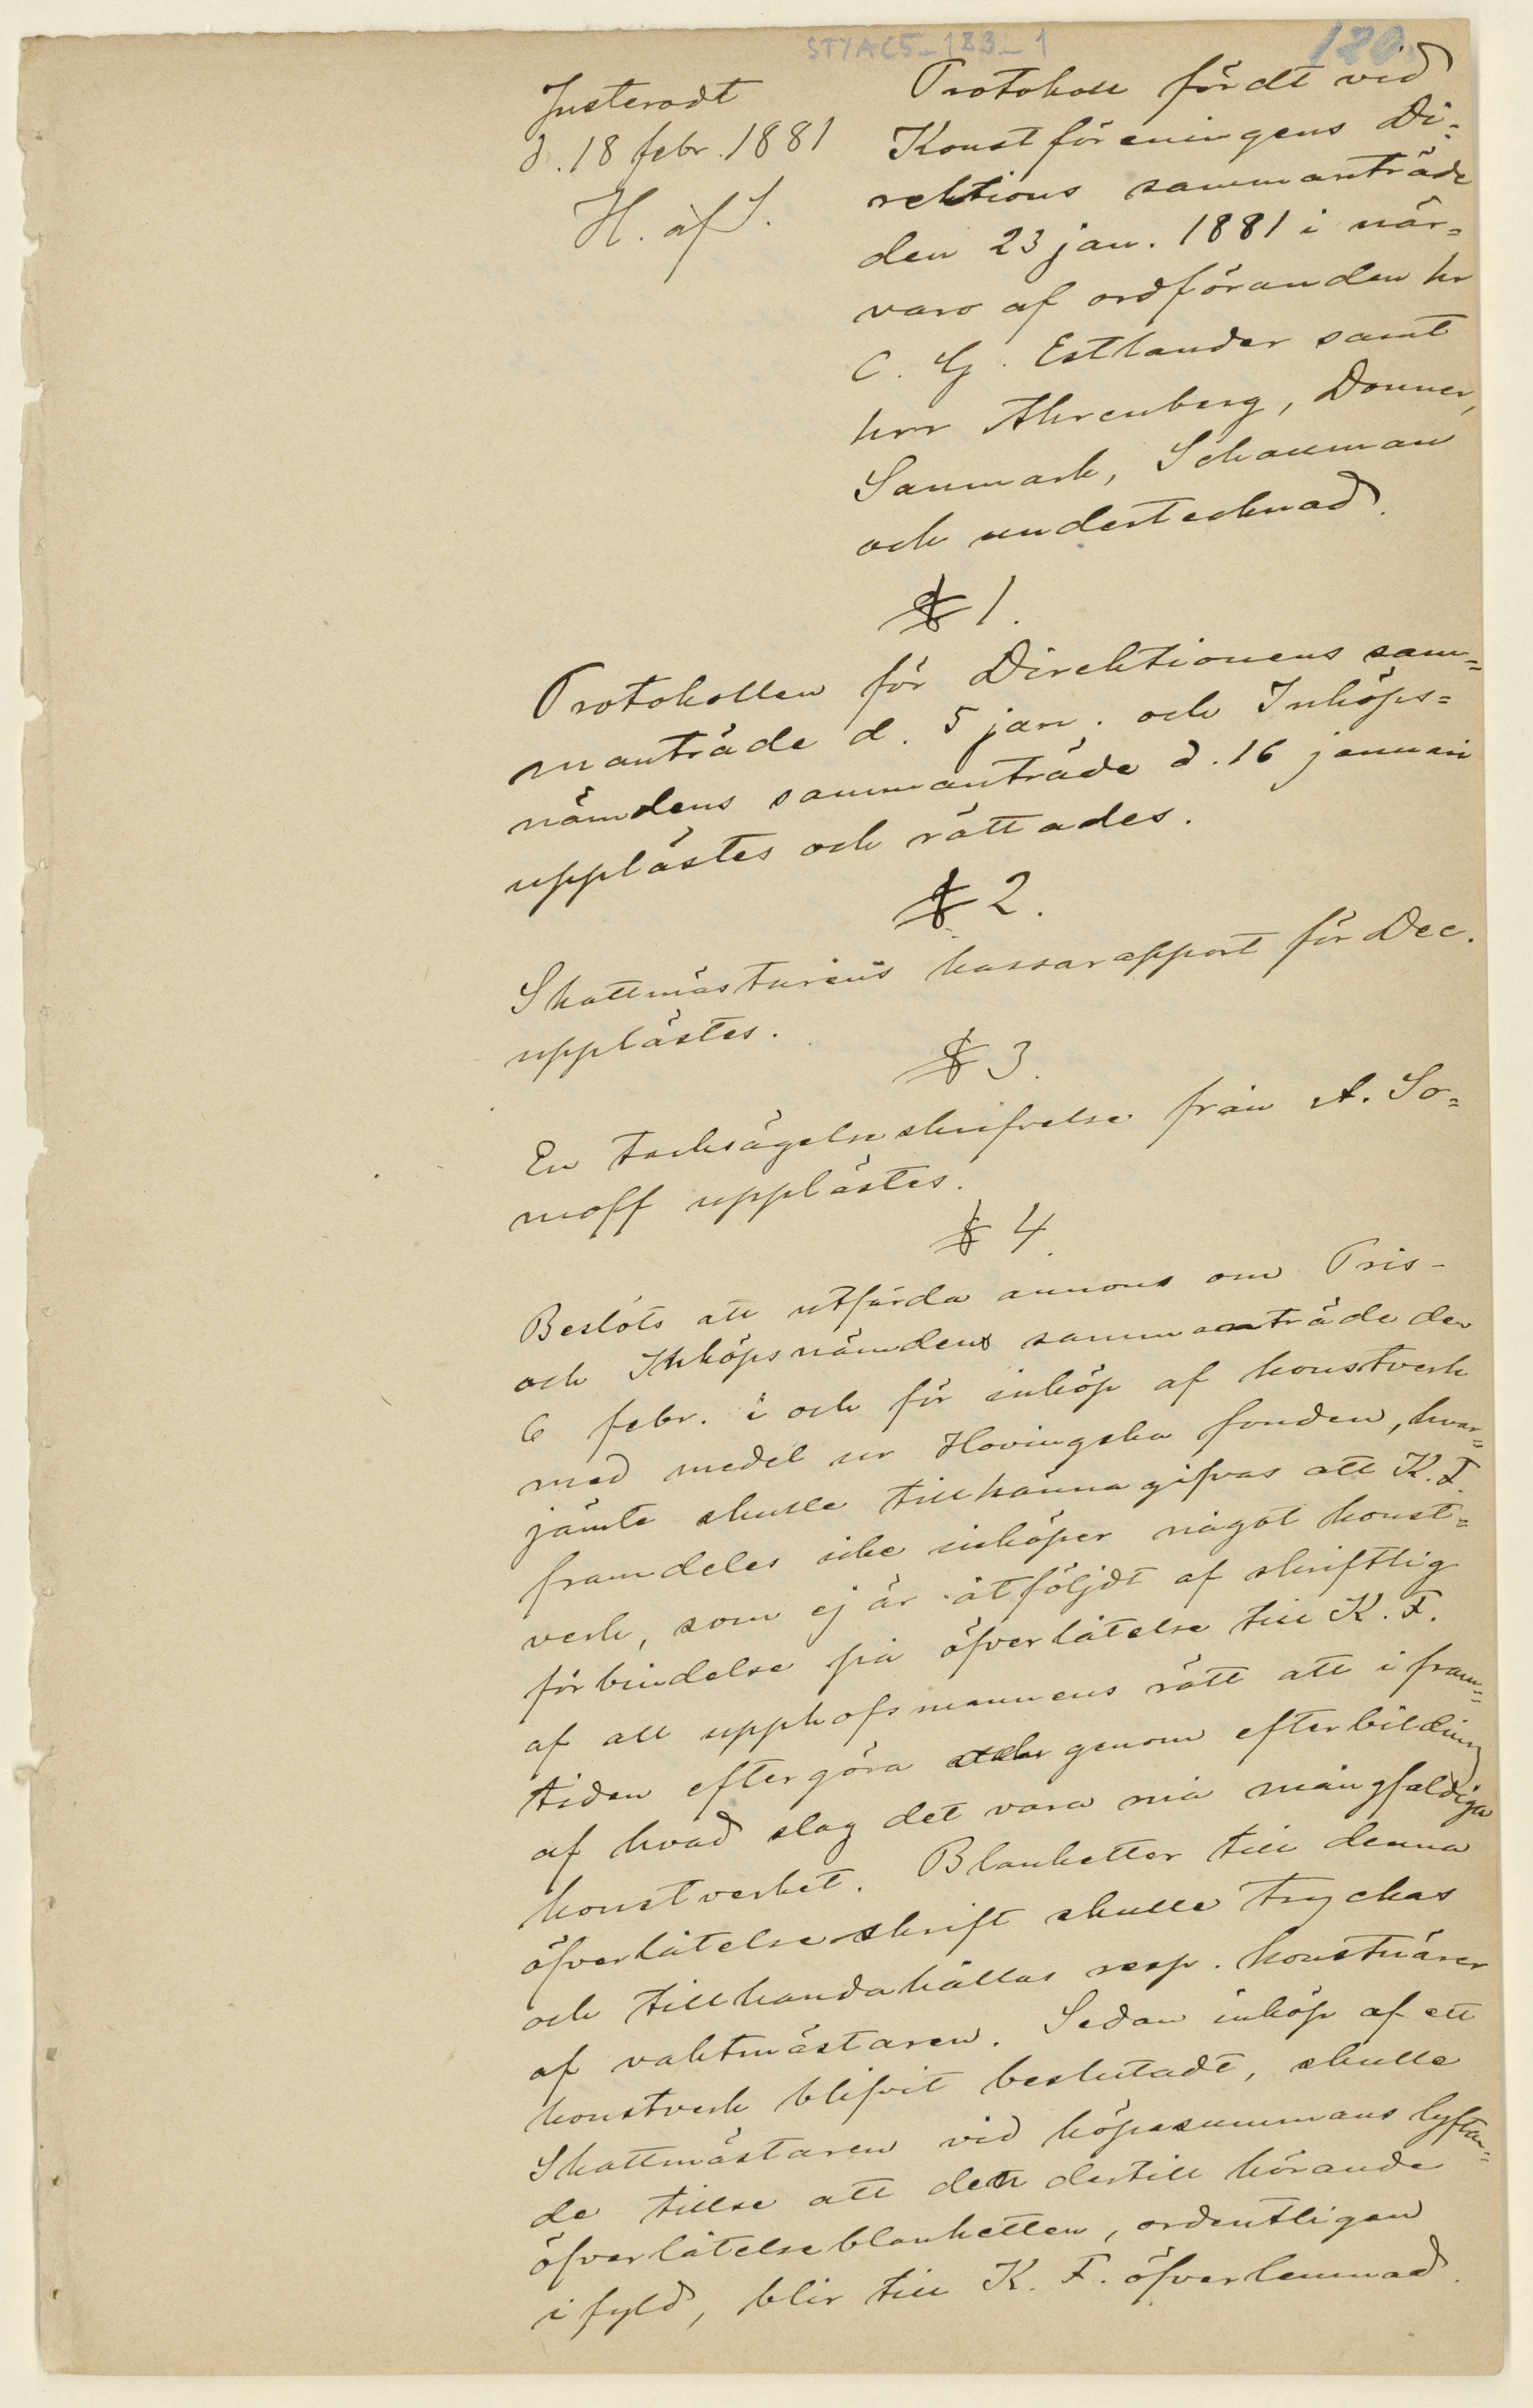 STYAC5_183_1
120.
Justeradt
d. 18 febr. 1881
H. af S.
Protokoll fördt vid
Konstföreningens Di=
rektions sammanträde
den 23 jan. 1881 i när=
varo af ordföranden hr
C. G. Estlander samt
hrr Ahrenberg, Donner,
Sanmark, Schauman
och undertecknad.
§ 1.
Protokollen för Direktionens sam=
manträde d. 5 jan. och Inköps=
nämdens sammanträde d. 16 januari
upplästes och rättades.
§ 2.
Skattmästarens kassarapport för Dec.
upplästes.
§ 3.
En tacksägelseskrifvelse från A. So=
moff upplästes.
§ 4.
Beslöts att utfärda annons om Pris-
och Inköpsnämdens sammanträde den
6 febr. i och för inköp af konstverk
med medel ur Hovingska fonden, hvar=
jämte skulle tillkännagifvas att K. F.
framdeles icke inköper något konst=
verk, som ej är åtföljdt af skriftlig
förbindelse på öfverlåtelse till K. F.
af all upphofsmannens rätt att i fram=
tiden eftergöra eller genom efterbildning
af hvad slag det vara må mångfaldiga
konstverket. Blanketter till denna
öfverlåtelseskrift skulle tryckas
och tillhandahållas resp. konstnärer
af vaktmästaren. Sedan inköp af ett
konstverk blifvit beslutadt, skulle
Skattmästaren vid köpesummans lyftan=
de tillse att den dertill hörande
öfverlåtelseblanketten, ordentligen
ifyld, blir till K. F. öfverlemnad.